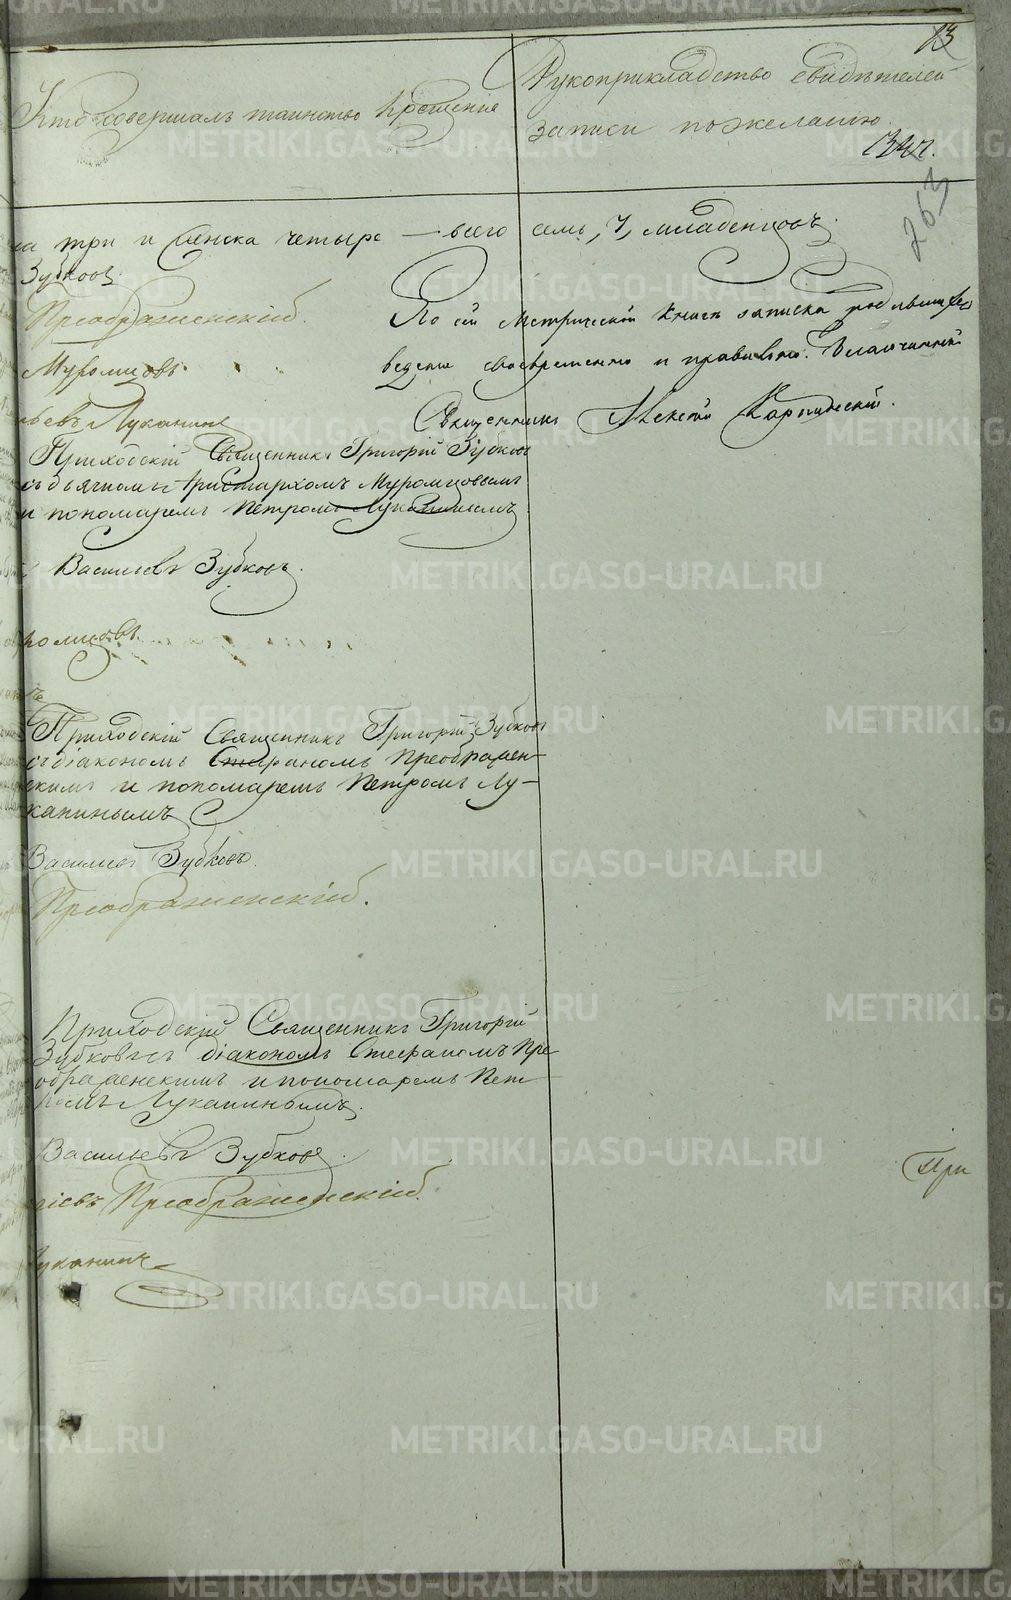 13
Кто совершалъ таинство Крещенія
Рукоприкладство свидѣтелей
записи по желанію.
263
ла три и женска четыре — всего семь, 7, младенцовъ.
Зубковъ
Преображенскій.
По сей Метрической Книгѣ записка родившихся
Муромцовъ
ведена своевременно и правильно. Благочинный
Священникъ Алексій
ьевъ Луканинъ
Приходскій Священникъ Григорій Зубковъ
съ дьячкомъ Аристархомъ Муромцовымъ
и пономаремъ Петромъ Луканинымъ
Васильевъ Зубковъ.
ромцовъ
Приходскій Священникъ Григорій Зубковъ
съ діакономъ Стефаномъ Преображен-
скимъ и пономаремъ Петромъ Лу-
канинымъ
Васильевъ Зубковъ.
Преображенскій.
Приходскій Священникъ Григорій
Зубковъ съ діакономъ Стефаномъ Пре
ображенскимъ и пономаремъ Пет
ромъ Луканинымъ.
Васильевъ Зубковъ
При
Преображенскій.
Луканинъ
METRIKI.GASO-URAL.RU